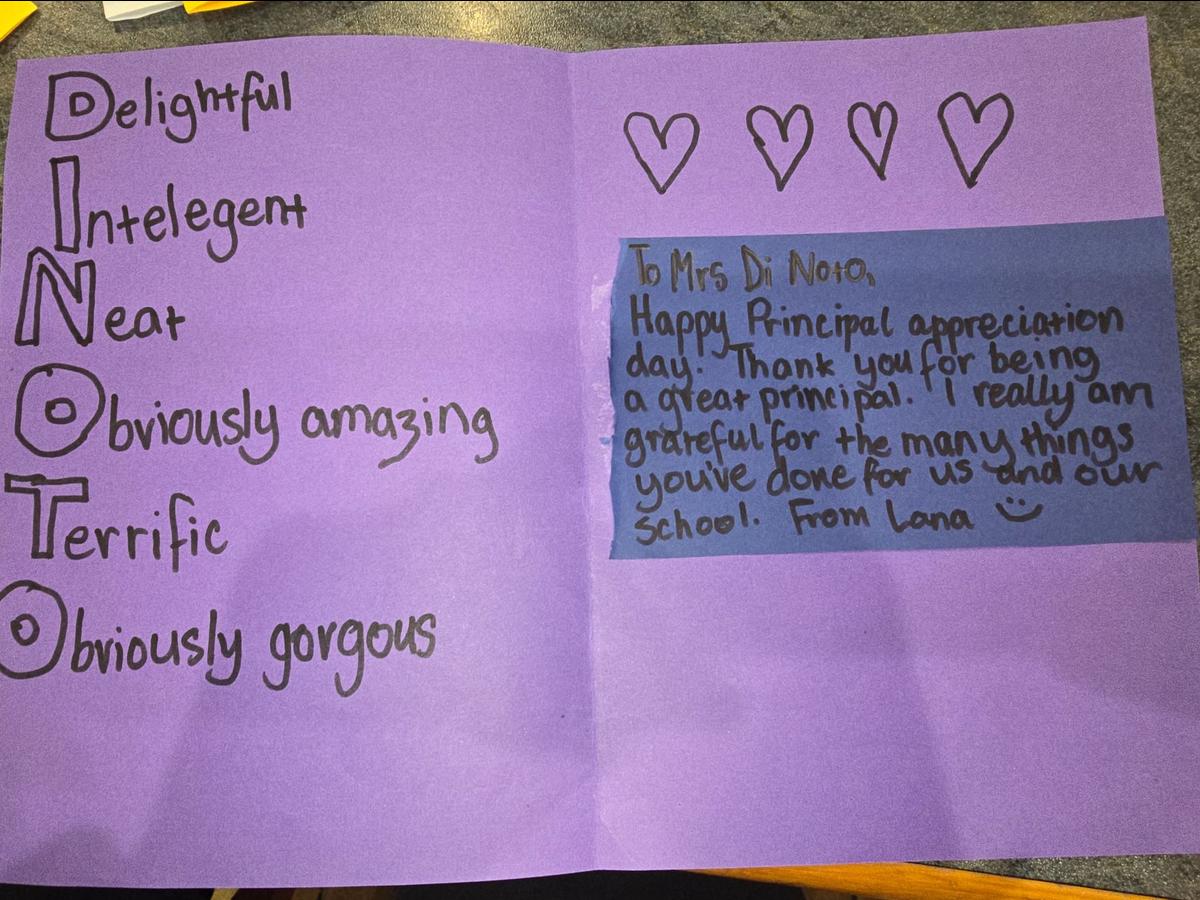 Delightful
Intelegent
Neat
Obviously amazing
Terrific
Obviously gorgous
To Mrs Di Noto,
Happy Principal appreciation
day. Thank you for being
a great principal. I really am
grateful for the many things
you've done for us and our
school. From Lana